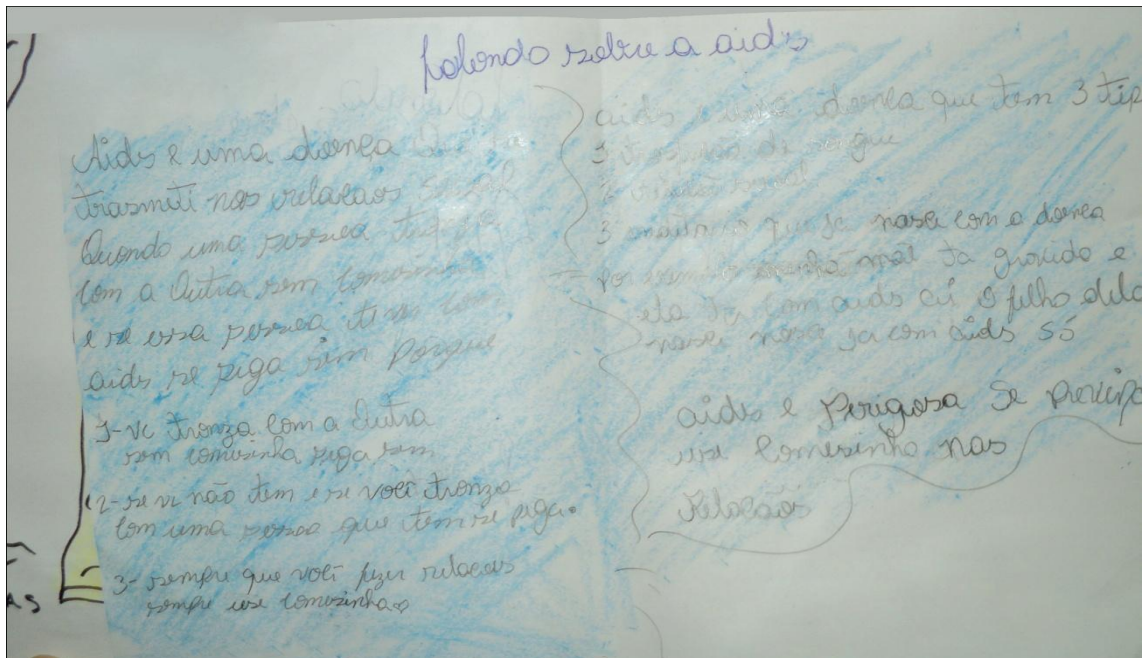 falando sobre a aids
Aids e uma doença Que
trasmiti nas relacãos
Quando uma pessoa
com a Outra sem comisinha
e se essa pessoa tem com
aids se pega sim porque
1-vc tranza com a Outra
sem comisinha pega sim
2-se vc não tem e se você tranza
com uma pessoa que tem se pega.
3-sempre que você fizer relacãos
sempre use comisinha
aids e uma doença que tem 3 tip
3 de sangue
2
3 que ja nasci com a doença
por minha mãe ta gravida e
ela ta com aids ai o filho dela
nasci ja com aids só
aids e Perigosa Se previn
use Comisinha nas
Relacãos
as